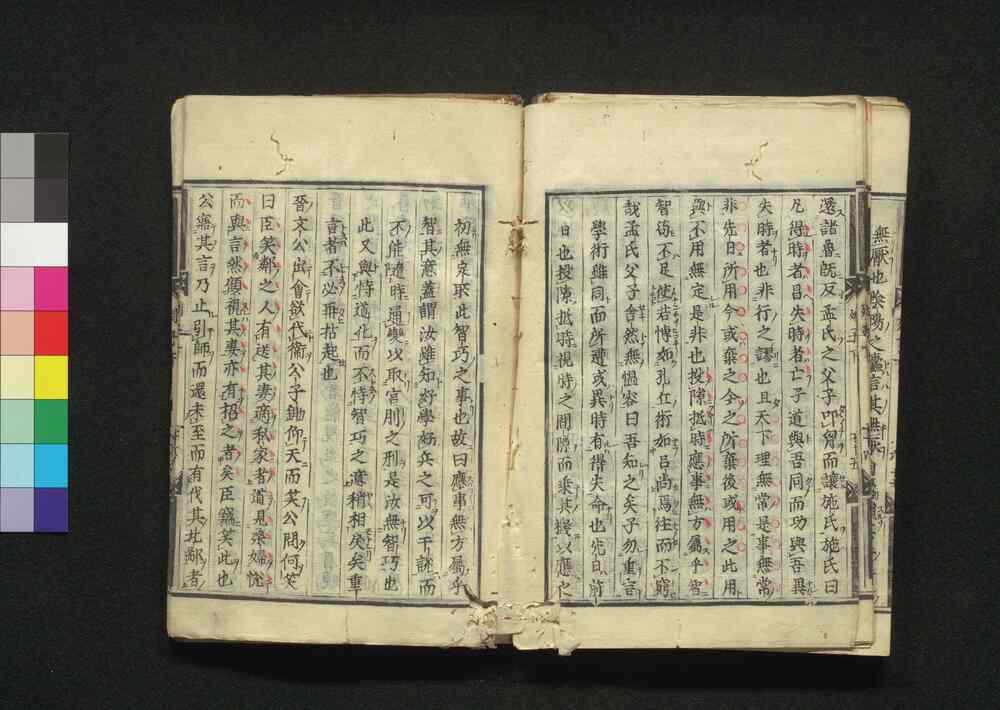 無厭也
言其無厭
還諸魯既反孟氏之父子叩胷而讓施氏施氏曰
凡得時者昌失時者亡子道與吾同而功與吾異
失時者也非行之謬也且天下理無常是事無常
非先日所用今或棄之今之所棄後或用之此用
與不用無定是非也投隙抵時應事無方屬乎智
智苟不足使若博如孔丘術如呂尚焉往而不窮
哉孟氏父子舍然無慍容曰吾知之矣子勿重言
學術雖同而所遭或異時有得失命也先日前
日也投隙抵時視時之間隙而乘其機以應之
初無定取此智巧之事也故曰應事無方屬乎
智其意蓋謂汝雖知好學好兵之可以干說而
不能隨時通變以取宮刖之刑是汝無智巧也
此又與恃道化而不恃智巧之意稍相戾矣重
言者不必再拈起也
晉文公出會欲伐衛公子鋤仰天而笑公問何笑
曰臣笑鄰之人有送其妻適私家者道見桑婦悅
而與言然顧視其妻亦有招之者矣臣竊笑此也
公寤其言乃止引師而還未至而有伐其北鄙者